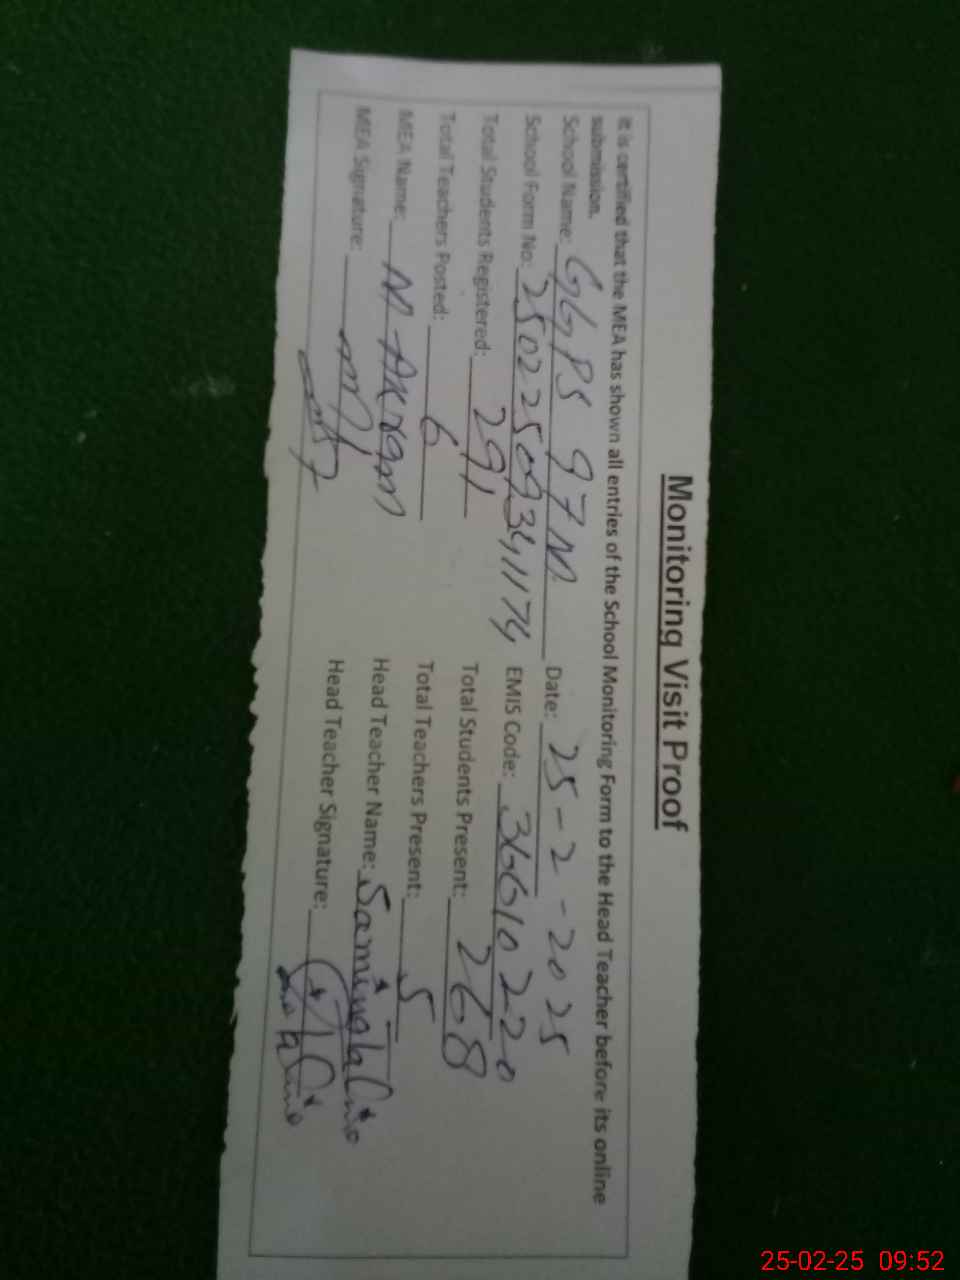 Monitoring Visit Proof
It is certified that the MEA has shown all entries of the School Monitoring Form to the Head Teacher before its online
submission.
School Name: GGPS 97M Date: 25-2-2025
School Form No: EMIS Code: 36610220
Total Students Registered: 291 Total Students Present: 268
Total Teachers Posted: 6 Total Teachers Present: 5
MEA Name: M. Akram Head Teacher Name:
MEA Signature: Head Teacher Signature:
25-02-25 09:52